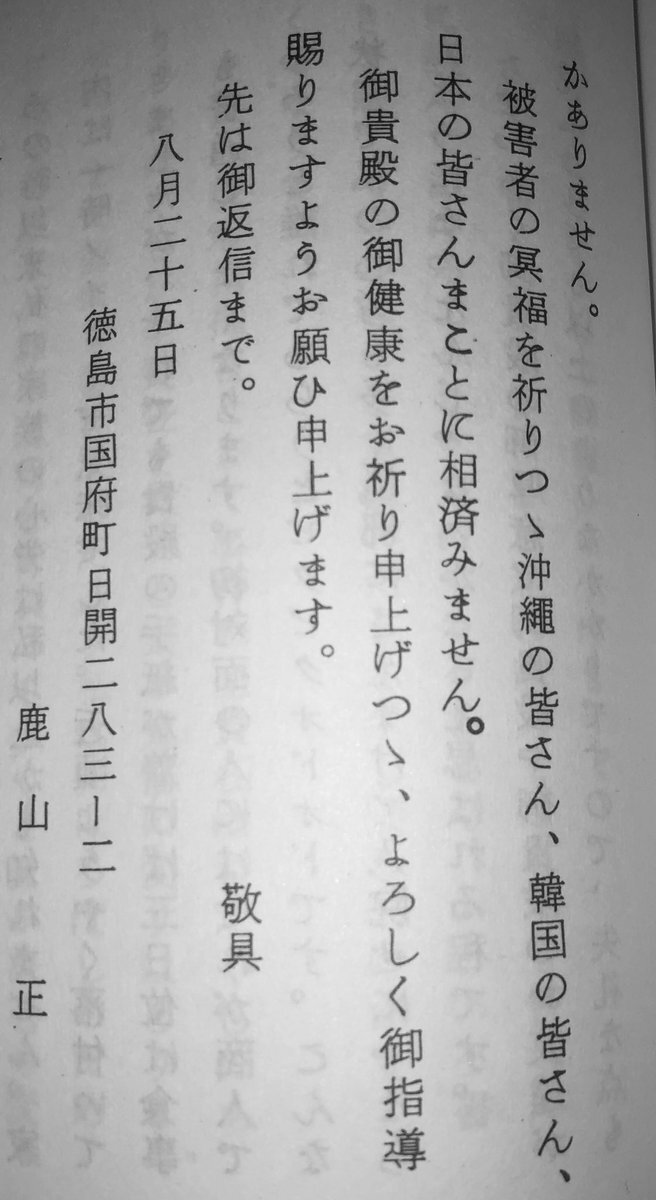 かありません。
被害者の冥福を祈りつゝ沖繩の皆さん、韓国の皆さん、
日本の皆さんまことに相済みません。
御貴殿の御健康をお祈り申上げつゝ、よろしく御指導
賜りますようお願ひ申上げます。
先は御返信まで。
敬具
八月二十五日
徳島市国府町日開二八三ー二
鹿山正